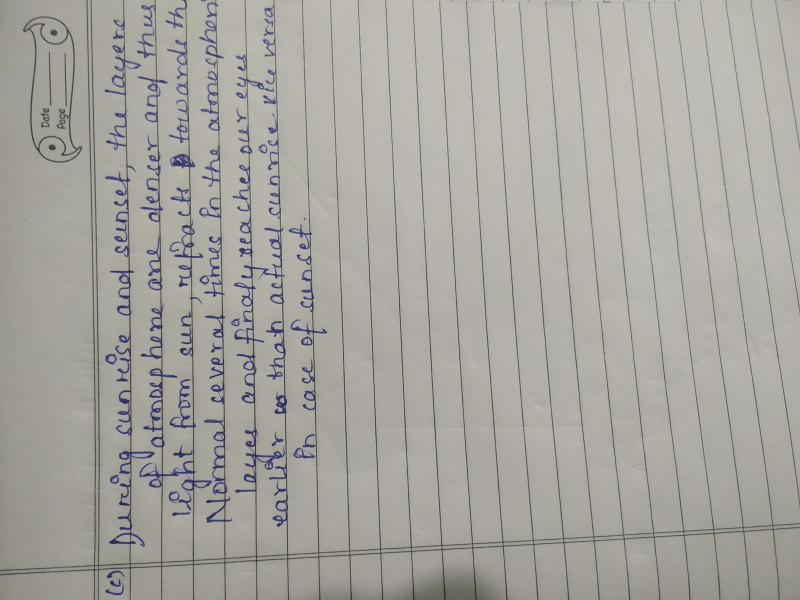 Date
Page
(c) During sunrise and sunset, the layers
of atmosphere are denser and thus
light from sun, refracts towards the
Normal several times in the atmospheric
layes and finaly reaches our eyes
earlier than actual sunrise vice versa
in case of sunset.